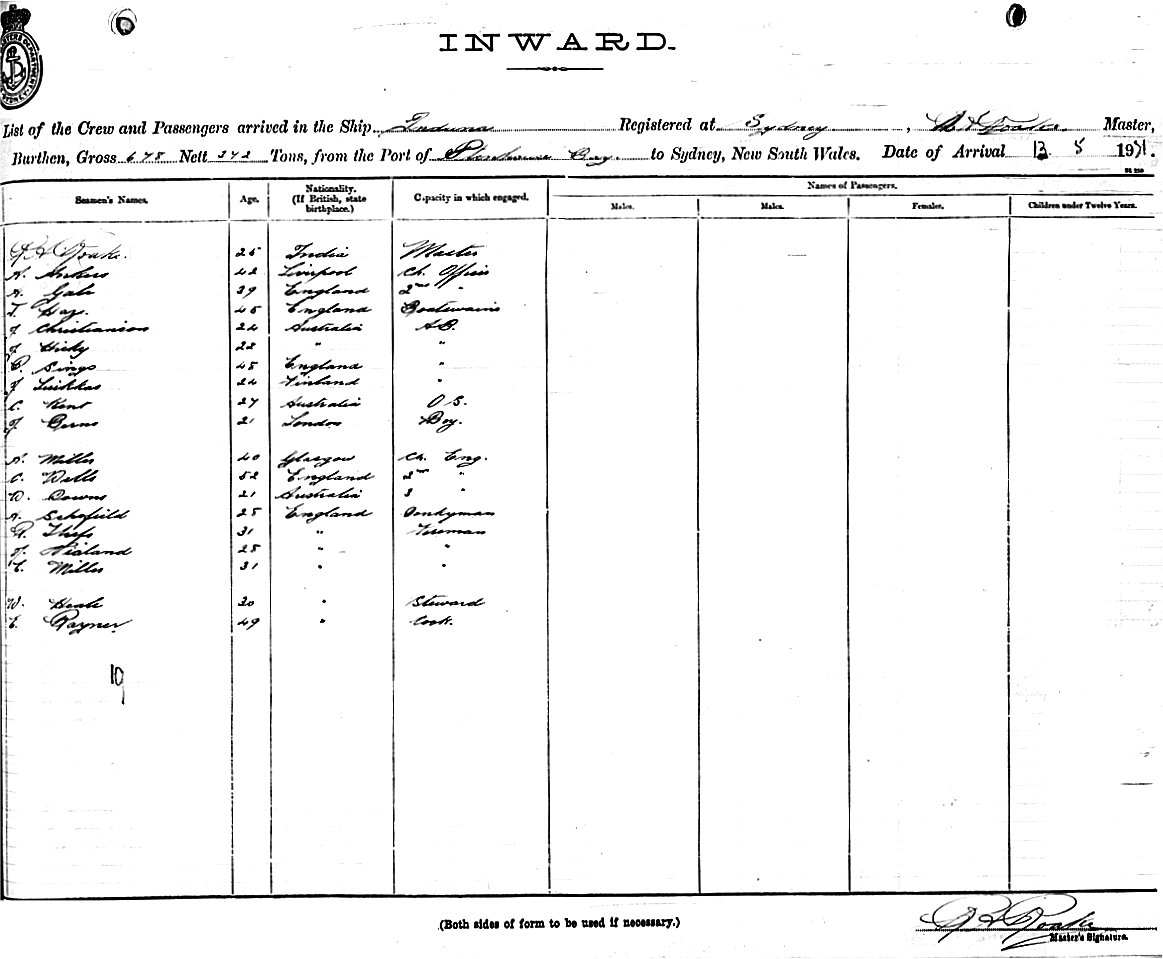 INWARD.
List of the Crew and Passengers arrived in the Ship Induna Registered at Sydney, Master,
Burthen, Gross 678 Nett 372 Tons, from the Port of Bay. to Sydney, New South Wales. Date of Arrival 13 5 1921.
Seamen's Names. Age. Nationality. (If British, state birthplace.) Capacity in which engaged. Names of Passengers.
Males. Males. Females. Children under Twelve Years.
25 India Master
A. 42 Liverpool Ch. Officer
A. Gale 39 England 2nd "
T. Hay. 45 England Boatswain
J Christianson 24 Australia AB.
J Hicky 22 " "
48 England "
J 24 Finland "
C. Kent 27 Australia O S.
J 21 London Boy.
A. Miller 40 Glasgow Ch. Eng.
C. Wells 52 England 2nd "
D. Downs 21 Australia 3 "
A. Schofield 28 England Donkyman
31 " Fireman
28 " "
C. Miller 31 " "
W. 30 " Steward
C. Rayner. 49 " Cook.
19
(Both sides of form to be used if necessary.)
Master's Signature.